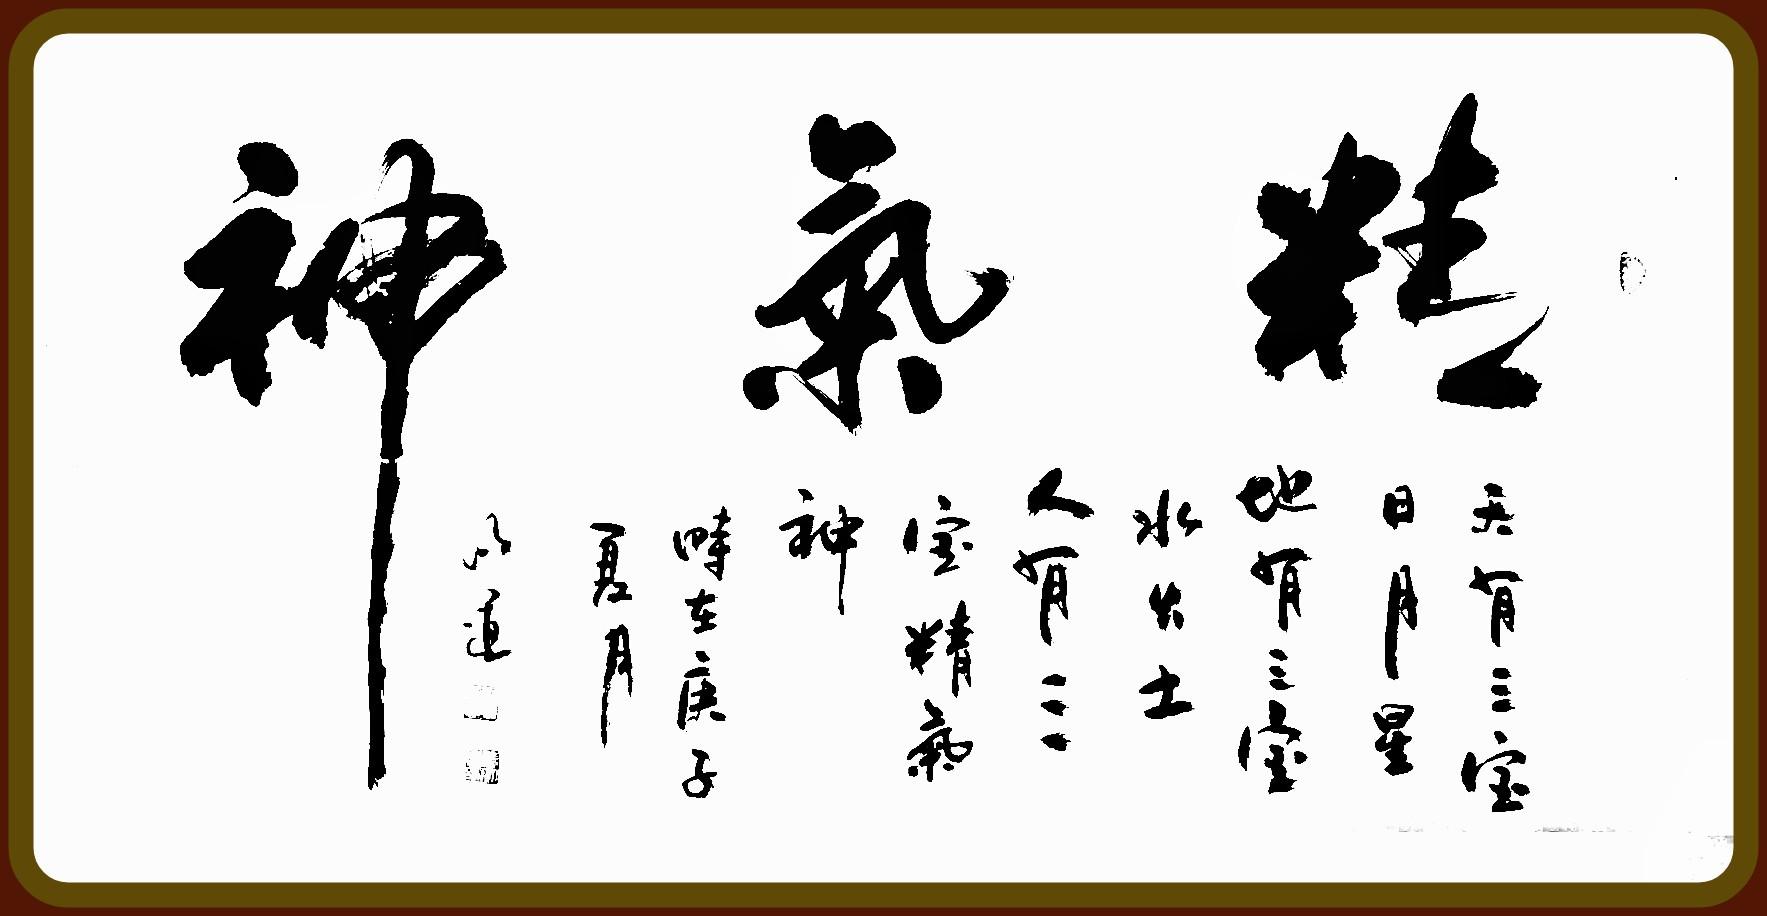 精氣神
天有三宝
日月星
地有三宝
水火土
人有三
宝精氣
神
時在庚子
夏月
道